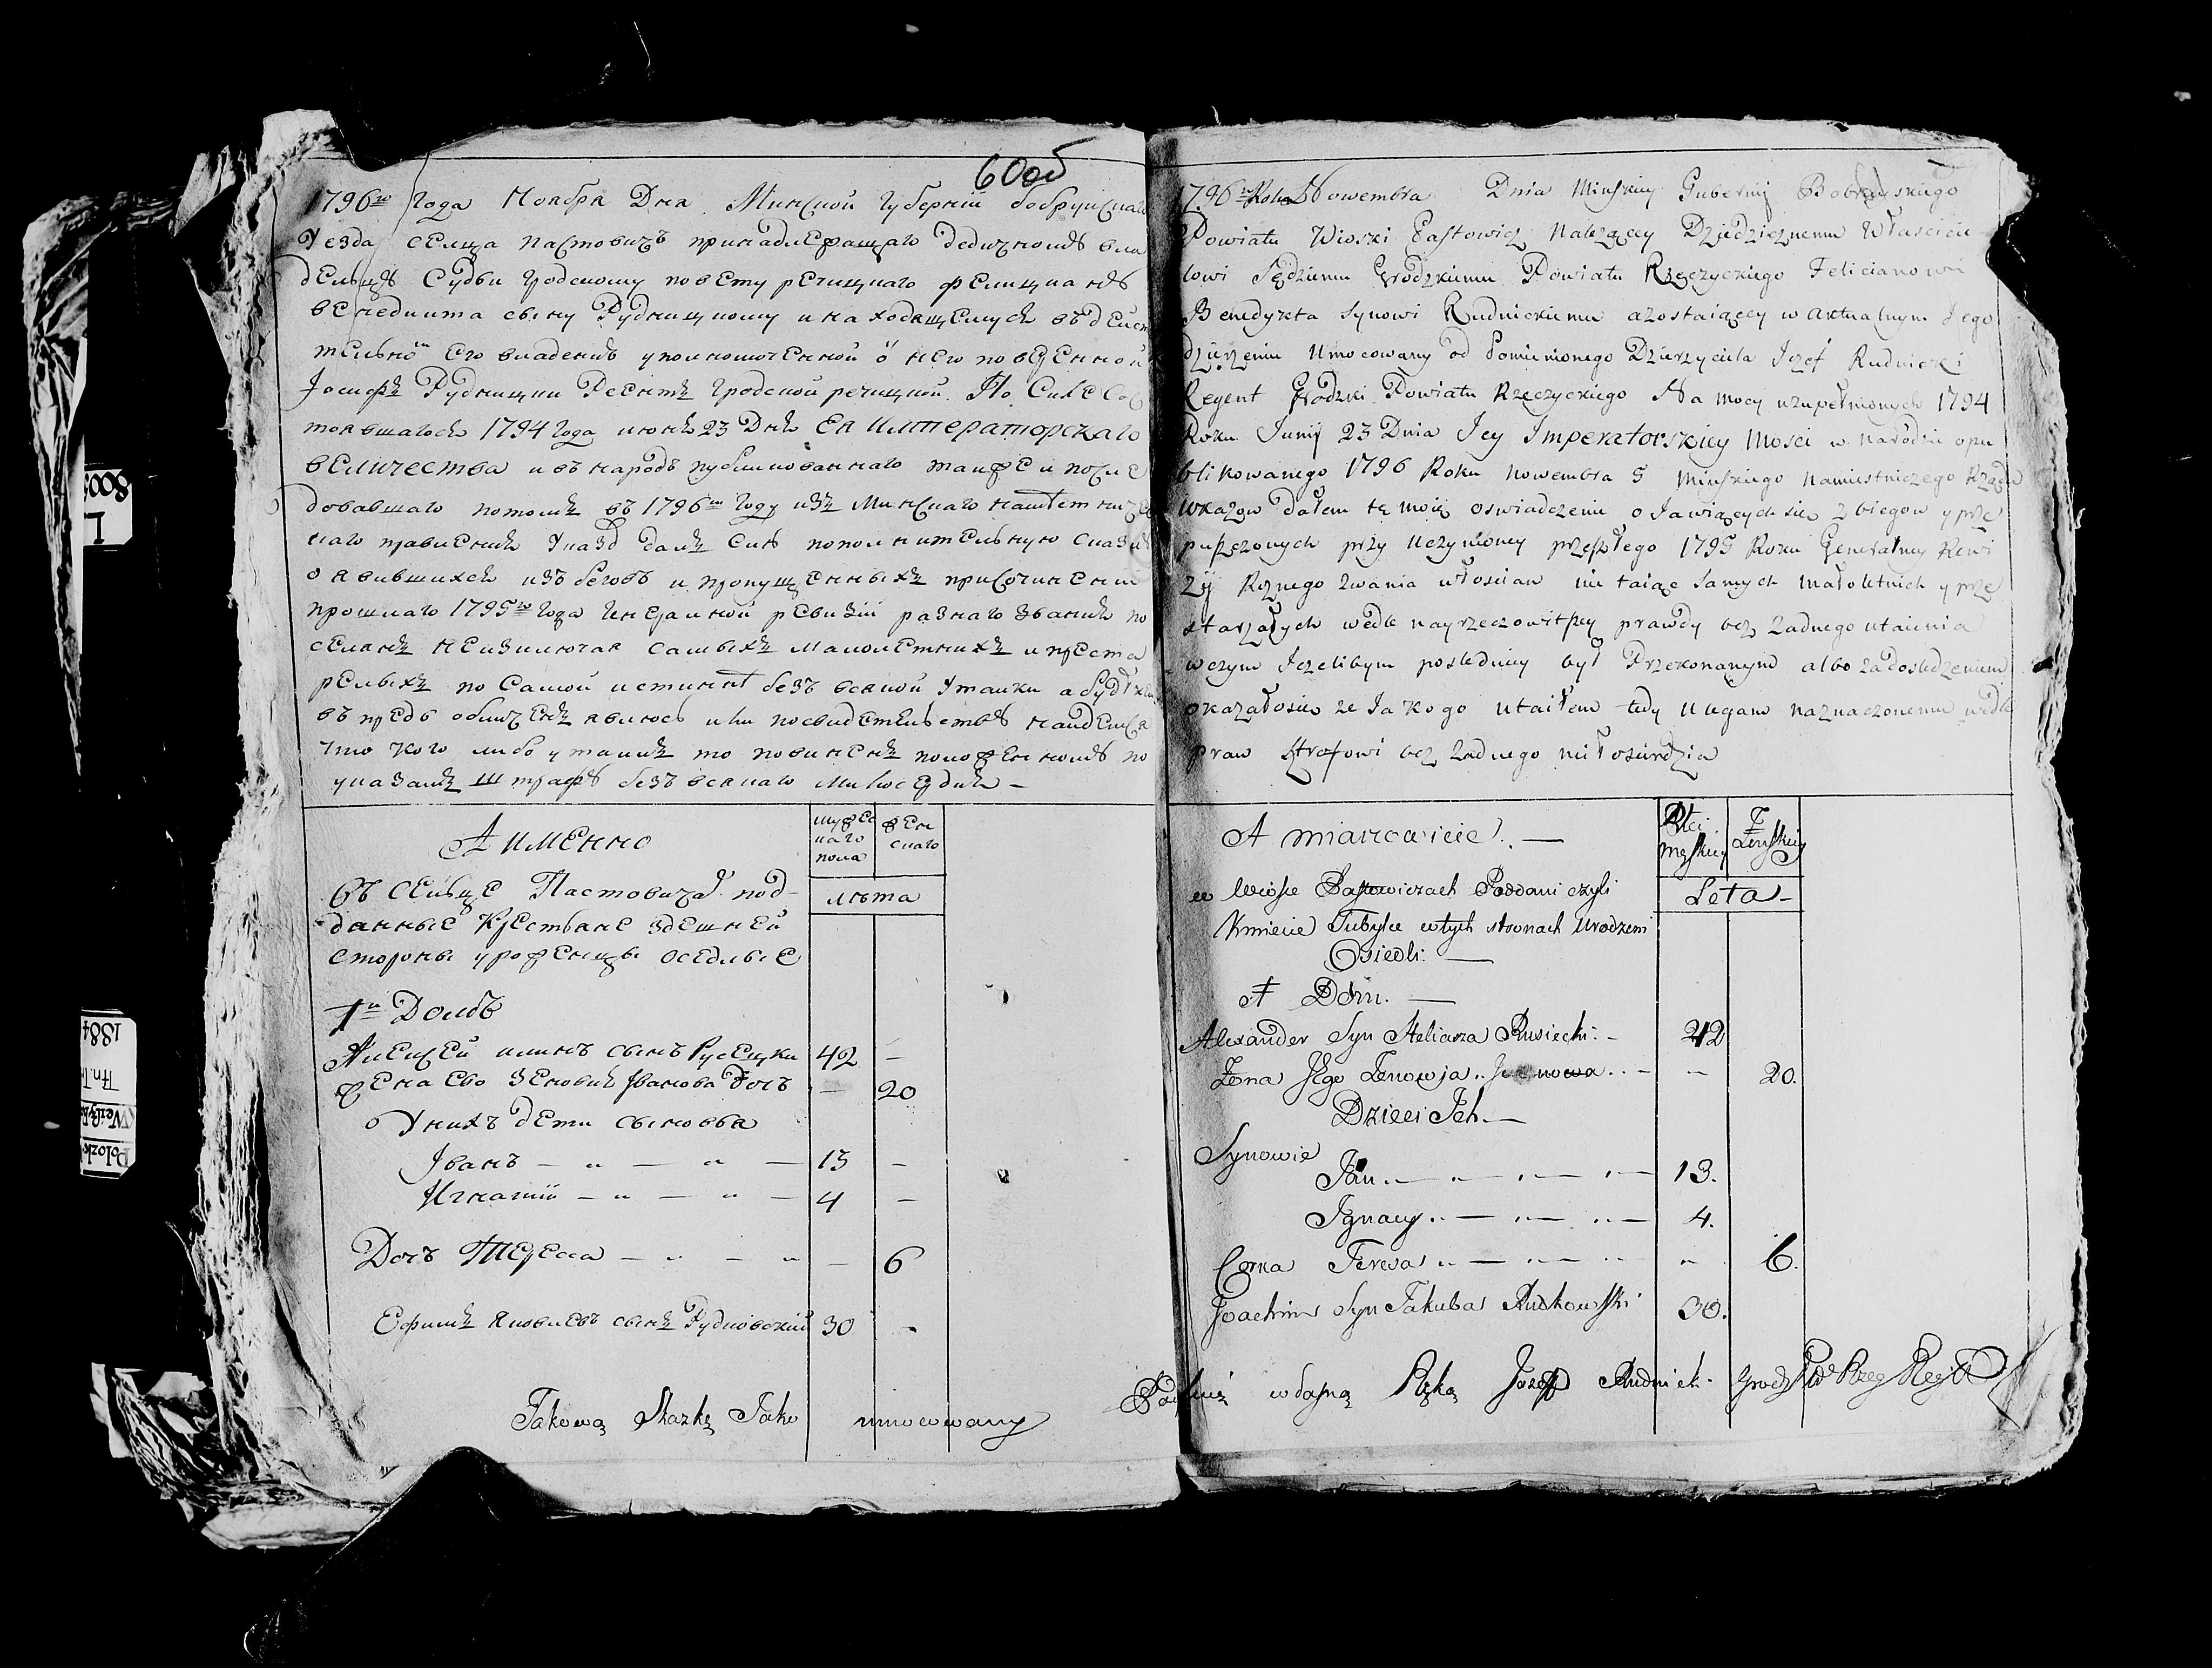 600б
1796го года Ноября Дня Минской Губернии бобруйскаго
Уезда селца пастовичъ принадлежащаго дедичному вла
дельцу Судьи гродскому повету речицкаго фелициану
венедикта сыну Рудницкому и находящемуся въ дейст
тельномъ Его владении уполномоченной о него поверенной
Іосифъ Рудницки Регентъ гродской речицкой. По Силе Сос
тоявшагося 1794 года июня 23 Дня Ея Императорскаго
величества и въ народъ публикованнаго также и после
довавшаго потомъ въ 1796мъ году изъ Минскаго наместниче
скаго правления Указа далъ сию пополнительную сказку
о явившихся изъ беговъ и пропущенныхъ при сочинении
прошлаго 1795го года генеральной ревизии разнаго звания по
селянъ неизключая самыхъ малолетнихъ и преста
релыхъ по самой истинне безъ всякой утайки а буде я
въ предь обличенъ явлюсь или по свидетельству найдется
что кого либо утаилъ то повиненъ положенному по
указамъ штрафу безъ всякаго милосердия –
А именно
мужес
каго
пола
жен
скаго
въ сельце Пастовичах под-
данные крестьяне здешней
стороны уроженцы оседлые
лѣта
1й Домъ
Алексей илинъ сынъ Русецки 42 –
жена ево Зеновия Иванова дочь – 20
У нихъ дети сыновья
Іванъ – „ – „ – 13 –
Игнатий – „ – „ – 4 –
Дочь Тересса – „ – „ – 6
Ефимъ яковлевъ сынъ Рудковский 30 –
Takową Skazkę Jako umocowany
1796go Roku Nowembra Dnia Minskiey Gubernij Bobruyskiego
Powiatu Wioski Pastowicz Należącey Dziedzicznemu Właścicie
lowi Sędziemu Grodzkiemu Powiatu Rzeczyckiego Felicianowi
Benedykta Synowi Rudnickiemu a zostaiącey w aktualnym Jego
dzierżeniu Umocowany od Pomienionego Dzierzyciela Jozef Rudnicki
Regent Grodzki Powiatu Rzeczyckiego Na mocy uzupełnionych 1794
Roku Junij 23 Dnia Jey Imperatorskiey Mosci w narodzie opu
blikowanego 1796 Roku Nowembra 5 Minskiego Namiestniczego Rządu
Ukazow dałem tę moię oswiadczenie o Jawiących sie z biegow y prze
puszczonych przy Uczynioney przeszłego 1795 Roku Generalney Rewi
zij Roznego zwania włoscian nie taiąc samych małoletnich y prze
starzałych wedle nayrzeczowitszey prawdy bez żadnego utaienia
w czym Jeżelibym posledniey był Przekonanym albo za dosledzeniem
okazało sie ze Ja kogo utaiłem tedy ulegam naznaczonemu wedle
praw sztrafowi bez żadnego miłosierdzia
A mianowicie. —
Płci
męskiey
Żeńskiey
w Wiosce Pastowiczach Poddani czyli
Kmiecie Tubylce w tych stronach urodzeni
Osiedli. —
Leta –
A Dom. —
Alexander Syn Heliasza Rusiecki. – 42
Żona Jego Zenowja .. – – 20.
Dzieci Ich. —
Synowie
Jan .. – „ – „ – 13.
Ignacy .. – „ – „ – 4.
Corka Teresa .. – „ – „ „ 6.
Joachim Syn Jakuba Rudkowski 30.
własną Ręką Jozef Rudnicki